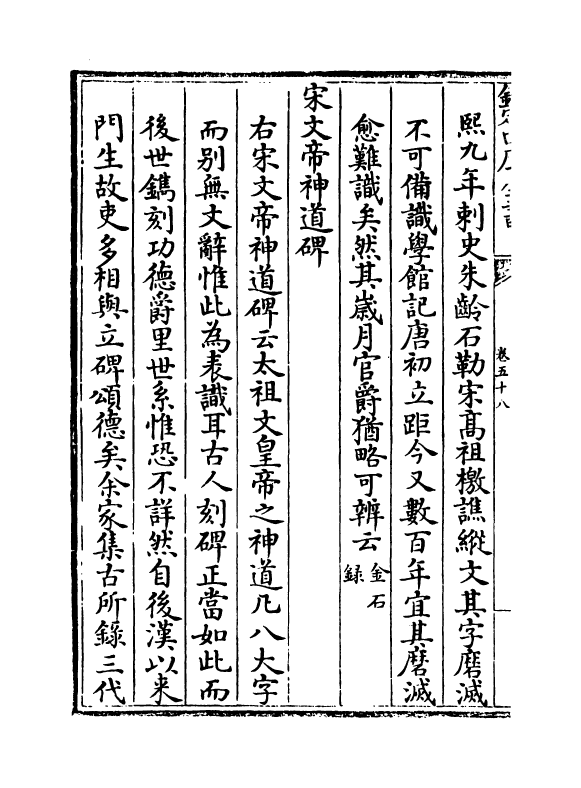 卷五十八
熙九年刺史朱齡石勒宋髙祖檄譙縱文其字磨滅
不可備識學館記唐初立距今又數百年宜其磨滅
愈難識矣然其歳月官爵猶略可辨云金石録
宋文帝神道碑
右宋文帝神道碑云太祖文皇帝之神道凡八大字
而别無文辭惟此為表識耳古人刻碑正當如此而
後世鐫刻功德爵里世系惟恐不詳然自後漢以来
門生故吏多相與立碑頌德矣余家集古所錄三代